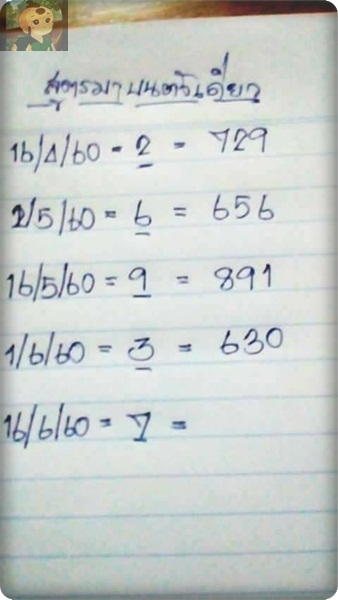 สูตรมาบนตัวเดียว
16/4/60 = 2 = 729
2/5/60 = 6 = 656
16/5/60 = 9 = 891
1/6/60 = 3 = 630
16/6/60 = 7 =